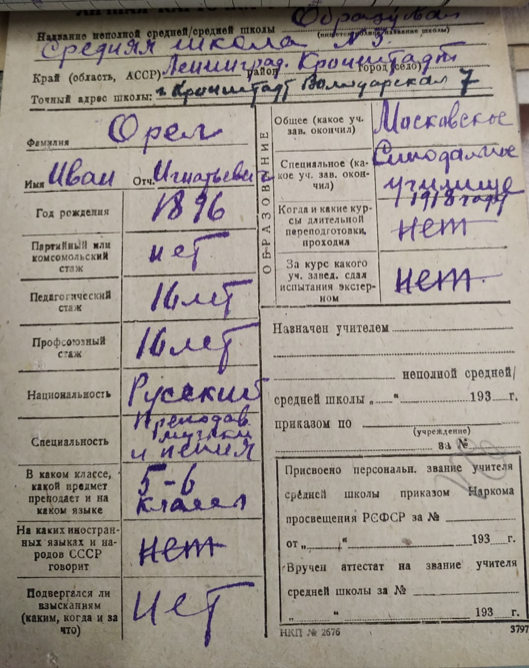 Название неполной средней/средней школы Образцовая
(наименование/название школы)
Средняя школа N 3.
Край (область, АССР) Ленинград. район Кронштадт город (село)
Точный адрес школы: г. Кронштадт Володарская 7
Фамилия Орел
Имя Иван Отч. Игнатьевич
Год рождения 1896
Партийный или комсомольский стаж нет
Педагогический стаж 16 лет
Профсоюзный стаж 16 лет
Национальность Русский
Специальность Преподав. музыки и пения
В каком классе, какой предмет преподает и на каком языке 5-6 класса
На каких иностранных языках и народов СССР говорит нет
Подвергался ли взысканиям (каким, когда и за что) Нет
ОБРАЗОВАНИЕ
Общее (какое уч. зав. окончил) Московское
Специальное (какое уч. зав. окончил) Синодальное училище 1918 году
Когда и какие курсы длительной переподготовки, проходил нет
За курс какого уч. завед. сдал испытания экстерном нет
Назначен учителем
неполной средней/
средней школы „ “ 193 г.
приказом по
(учреждение)
за №
Присвоено персональн. звание учителя
средней школы приказом Наркома
просвещения РСФСР за №
от „ “ 193 г.
Вручен аттестат на звание учителя
средней школы за №
„ “ 193 г.
НКП № 2676 3797